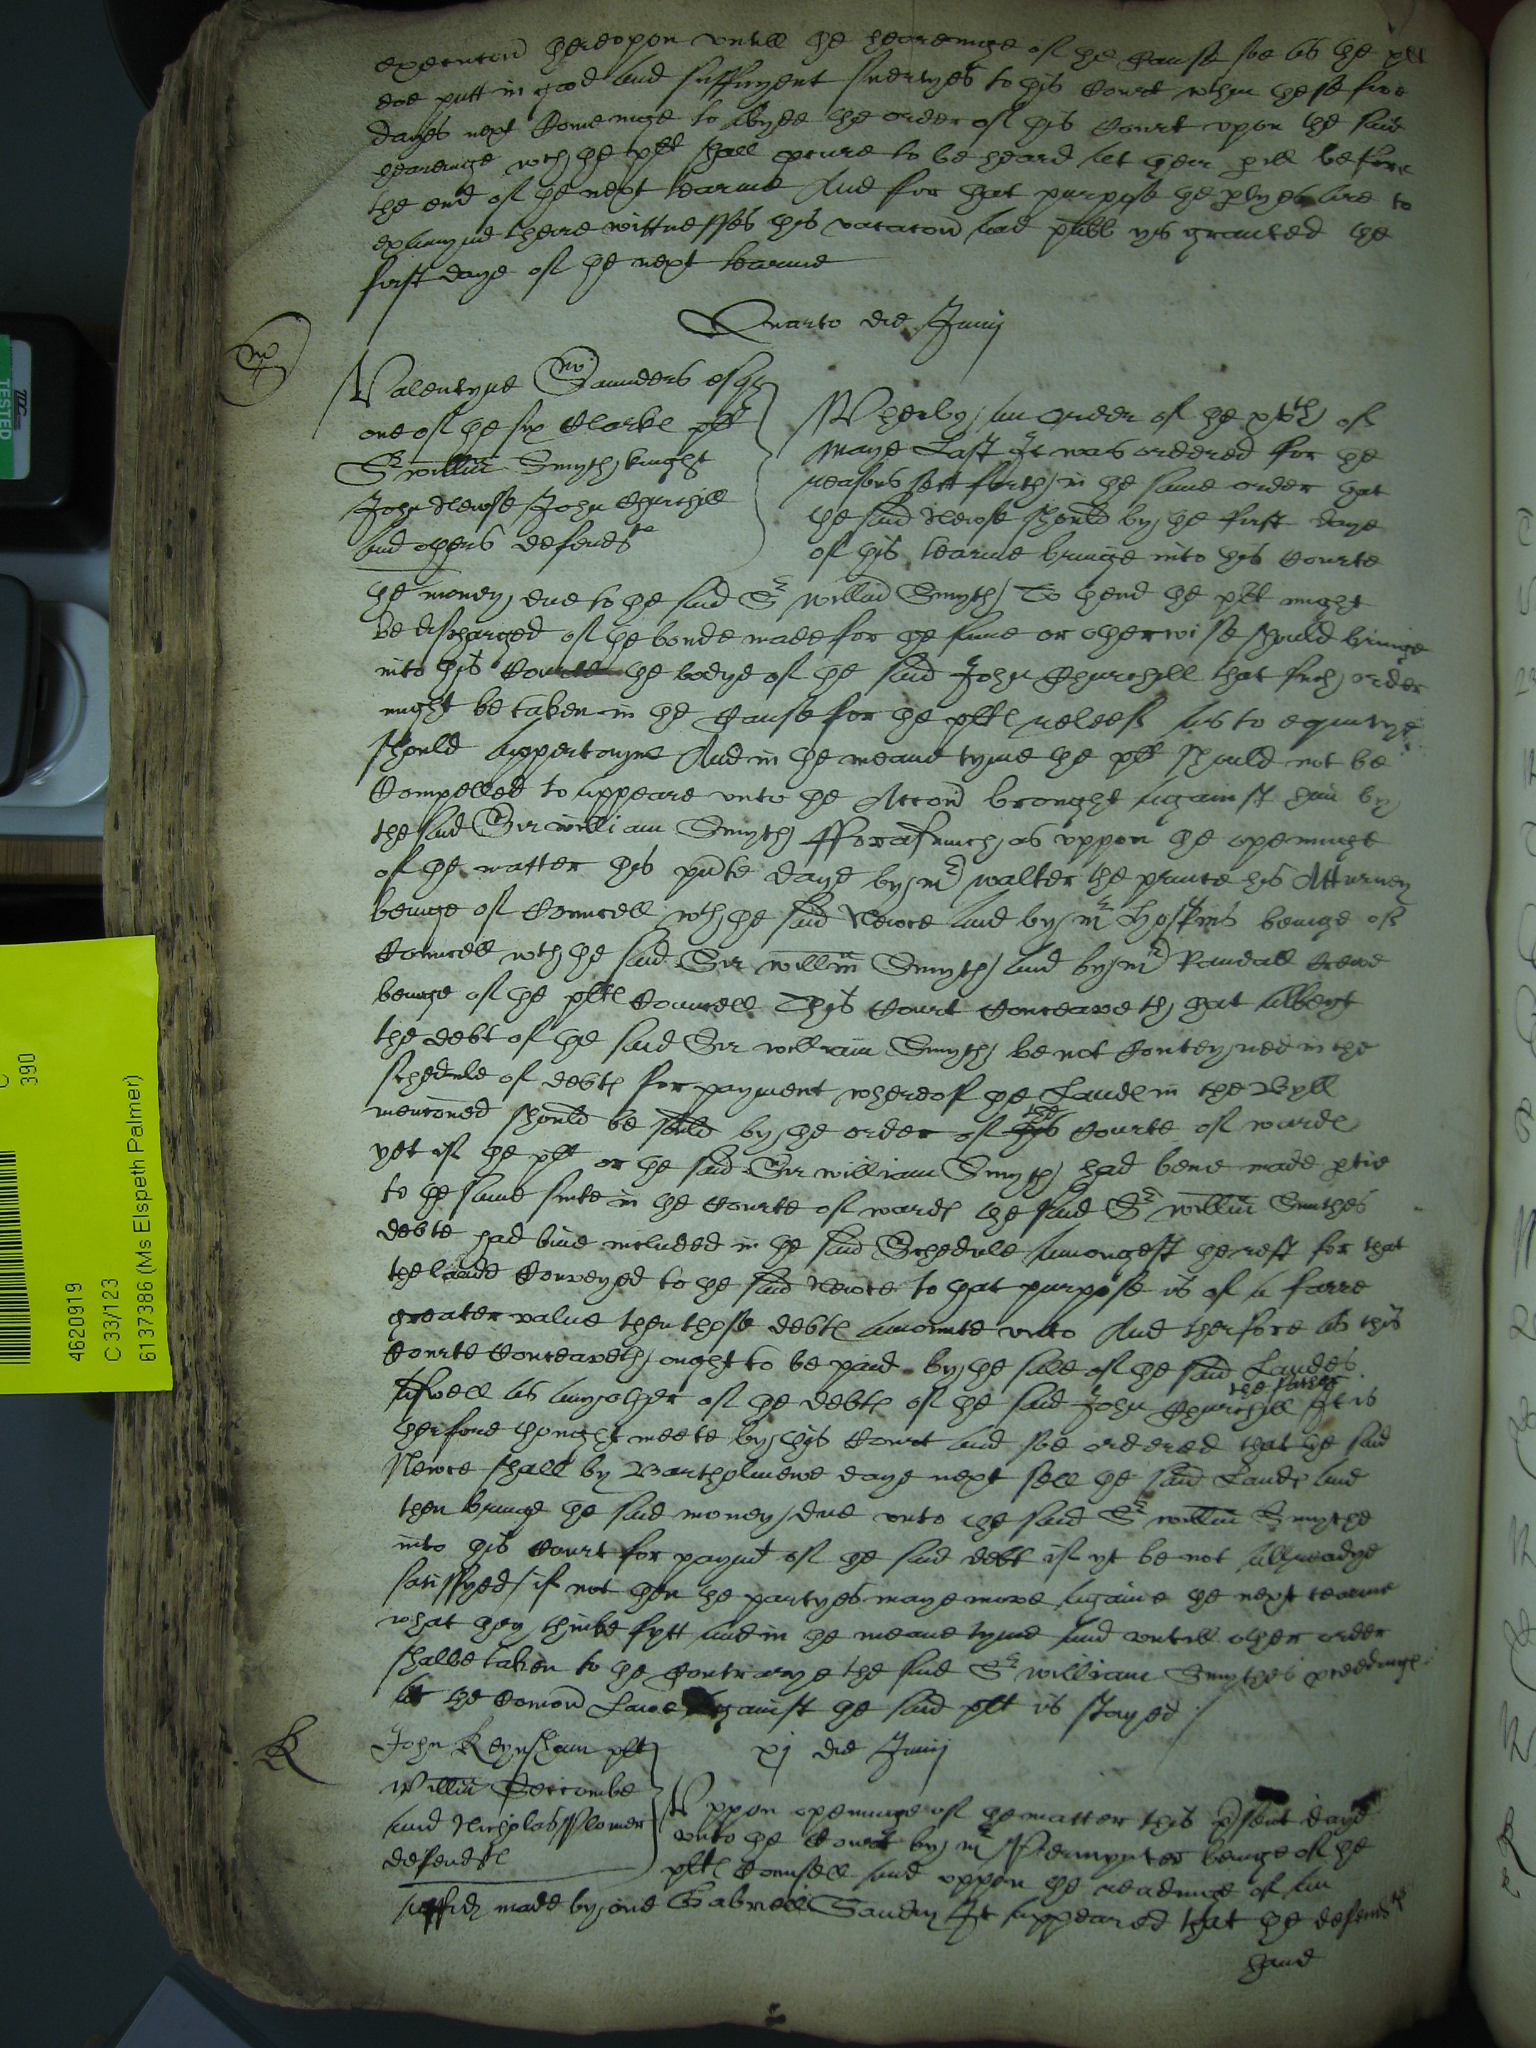 execucion thereopon untill the heareinge of the Cause soe as the plt
doe putt in good and suffycyent suertyes to this Court within these five
dayes next Comeinge to abyde the order of this Court upon the said
heareinge wch the plt shall procure to be heard att their perill before
the end of the next tearme And for that purpose the partyes are to
examyn theire wittnesses this vacacion and publ ys graunted the
first daye of the next tearme
Quarto die Junij
Valentyne Saunders esqr
one of the six Clarke plt
Sr willm Smyth knight
John Newse John Churchill
and others defendte
Wher by an Order of the of
Maye Last It was ordered for the
reasons sett forth in the same order that
the said Newse should by the first daye
of this tearme bringe into this Courte
the money due to the said Sr willm Smyth To thend the plt might
be discharged of the bonde made for the same or otherwise should bringe
into this Courte the bodye of the said John Churchill that such order
might be taken in the Cause for the plte releefe as to equitye
should appertayne And in the meane tyme the plt should not be
Compelled to appeare unto the Accon brought against him by
the said Sir william Smyth Fforasmuch as uppon the openinge
of the matter this pnte daye by Mr walter the prince his Atturney
beinge of Councell wth the said Newce and by Mr Hoskins beinge of
Councell wth the said Sir willm Smyth and by Mr Randall Crewe
beinge of the plte Councell This Court Conceaveth that albeyt
the debt of the said Sir william Smyth be not Conteyned in the
schedule of debte for payment whereof the Lande in the Byll
mencioned should be sould by the order of this the Courte of warde
yet if the plt or the said Sir william Smyth had bene made ptie
to the same suite in the Courte of warde the said Sr willm Smithes
debte had bine included in the said Schedule amongest the rest for that
the lande Conveyed to the said Newce to that purpose is of a farre
greater value then those debte amounte unto And therfore as this
Courte Conceaveth ought to be paid by the sale of the said Landes
aswell as any other of the debte of the said John Churchill the father It is
therfore thought meete by this Court and soe ordered that the said
Newce shall by Bartholmewe daye next sell the said Lande and
then bringe the said money due unto the said Sr willm Smythe
into this Court for paymt of the said debt if yt be not allreadye
satisfyed / if not then the partyes maye move againe the next tearme
what they thinke fytt and in the meane tyme and untill other order
shalbe taken to the Contrarye the said Sr william Smythes pceedinge
at the Comon Lawe against the said plt is stayed /
R
John Keynsham plt
Willm Seccombe
and Nicholas Flower
defendte
xj die Junij
Uppon openinge of the matter this psent daye
unto the Court by Mr beinge of the
plte Councell and uppon the readinge of an
affid made by one Gabriell It appeared that the defendte
haue
TESTED
390
4620919
C 33/123
6137386 (Ms Elspeth Palmer)